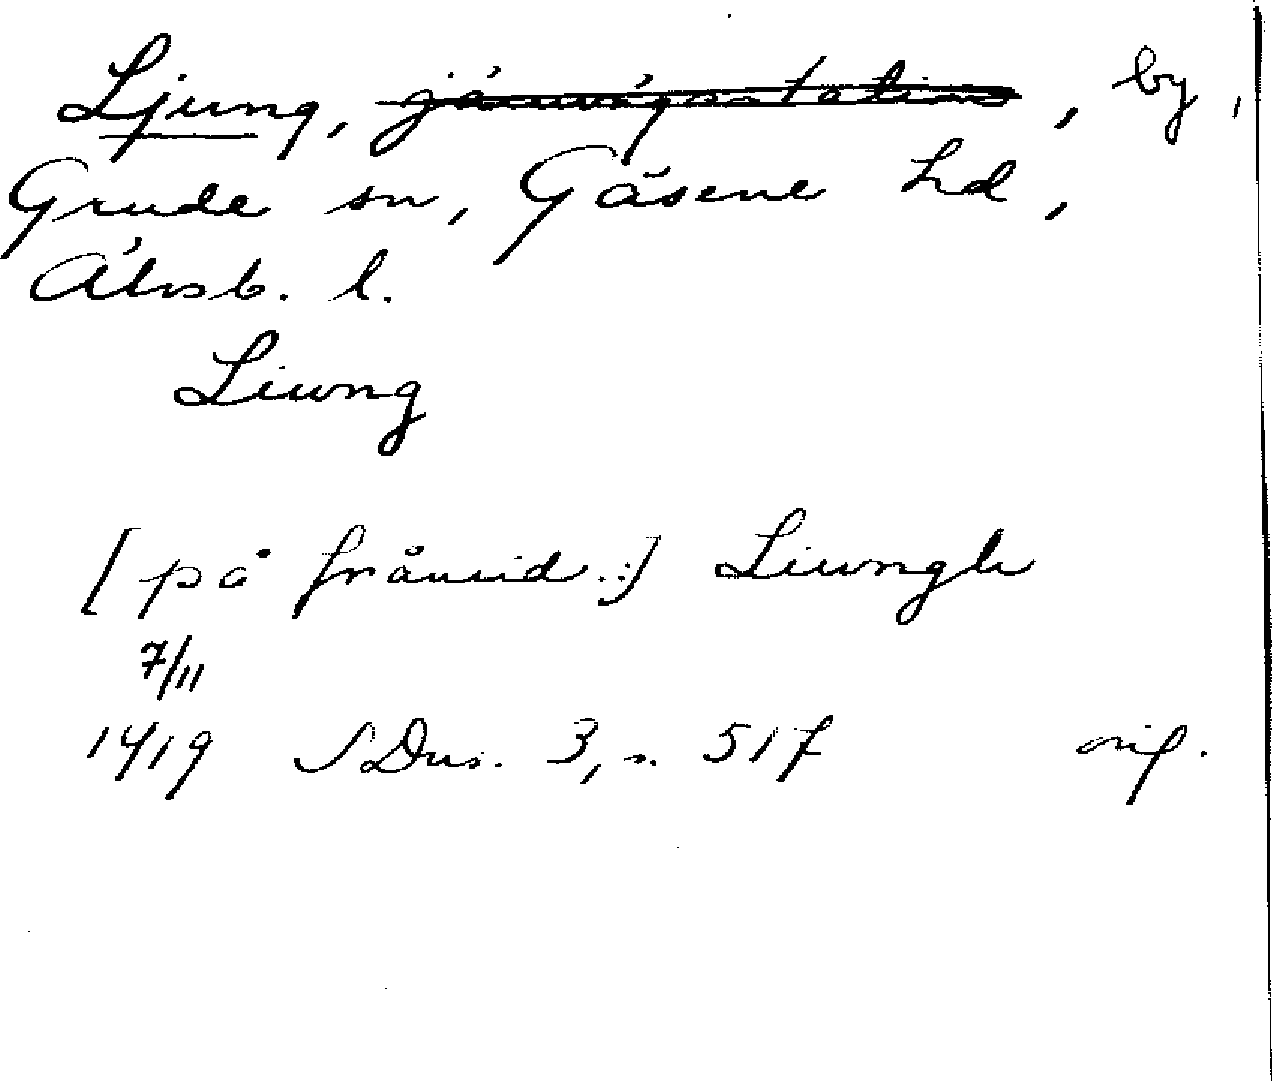 Ljung, järnvägsstation, by,
Grude sn, Gäsene hd,
Älvsb. l.
Liwng
[på frånsid.:] Liwngh
7/11
1419 SDns. 3, s. 517 orig.